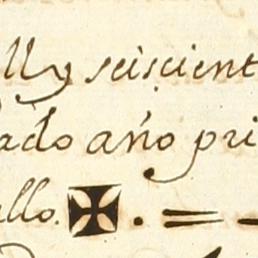 lly seiscient
ado año pri
llo.